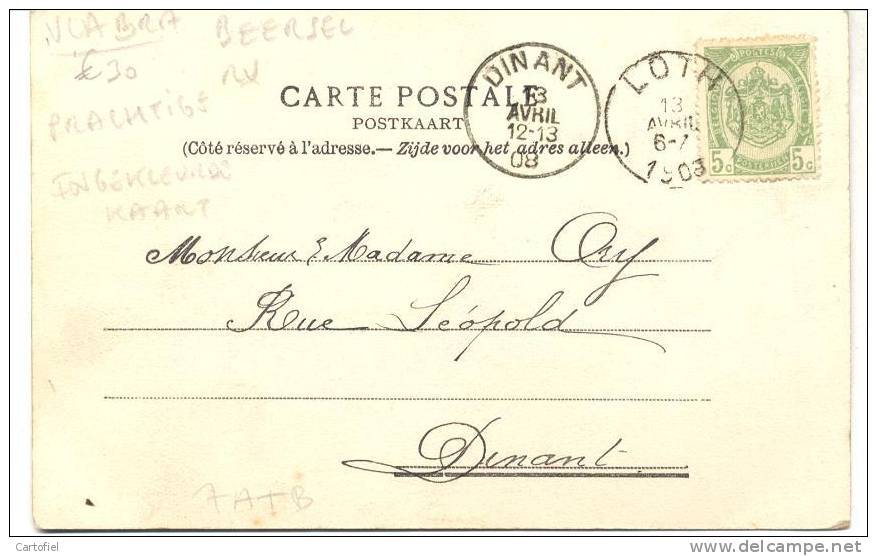 VLABRA BEERSEL
€30 RV
PRACHTIGE
INGEKLEURDE
KAART
CARTE POSTALE
POSTKAART
(Côté réservé à l'adresse.— Zijde voor het adres alleen.)
DINANT
13
AVRIL
12-13
08
LOTH
13
AVRIL
6-7
1908
POSTES
5c 5c
POSTERIJEN
Monsieur & Madame Ory
Rue Léopold
Dinant
7ATB
Cartofiel
delcampe.net